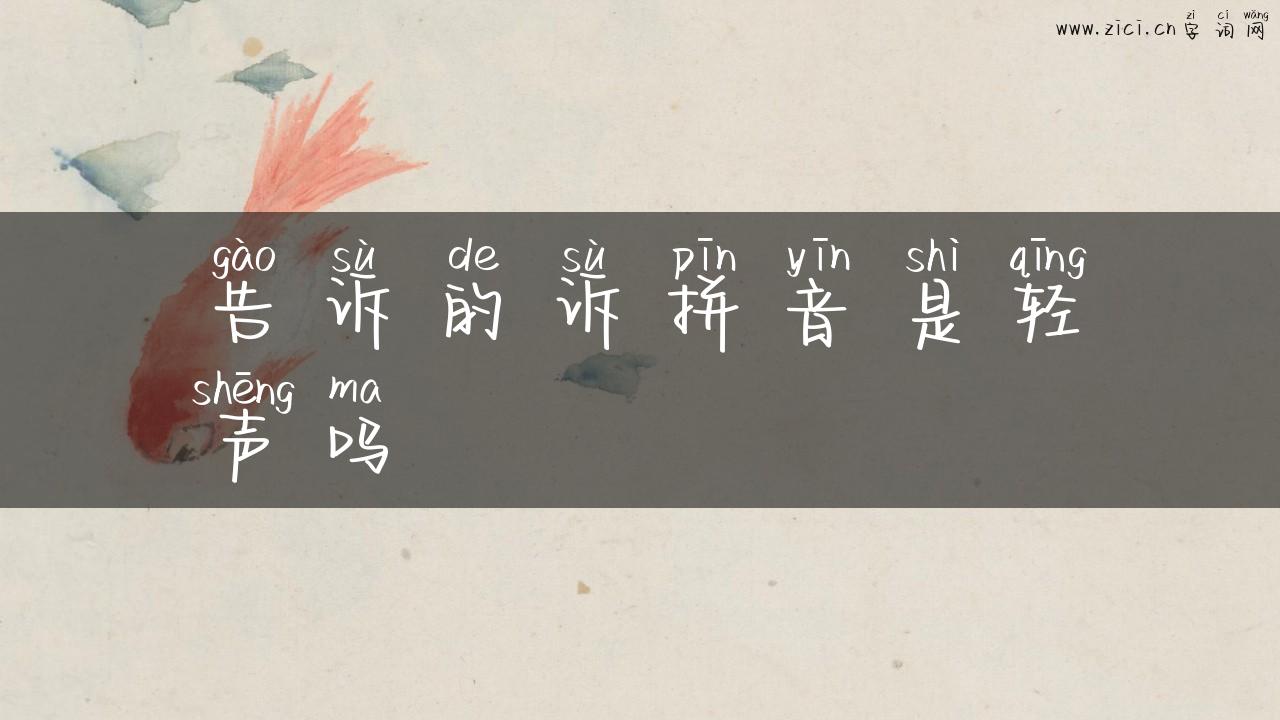 zì cí wǎng
www.zici.cn字词网
gào sù de sù pīn yīn shì qīng
告诉的诉拼音是轻
shēng ma
声吗